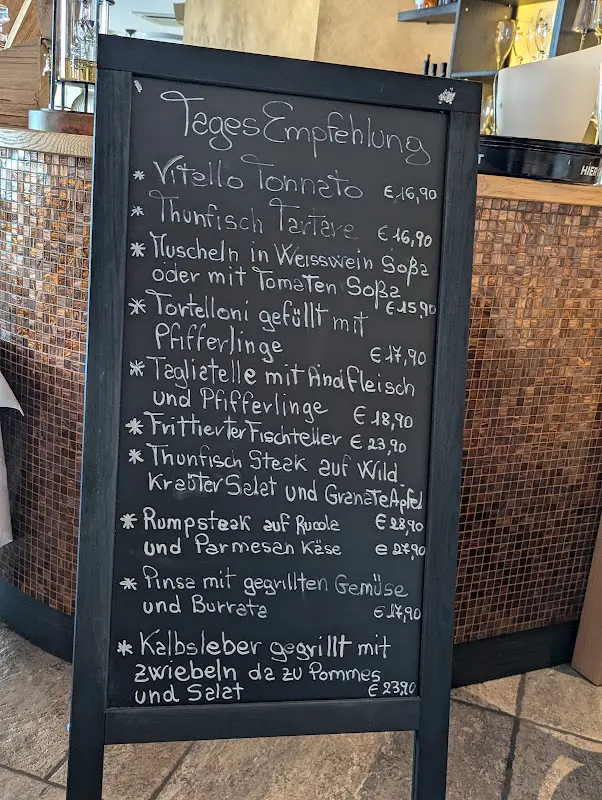 TagesEmpfehlung
* Vitello Tonnato €16,90
* Thunfisch Tartare €16,90
* Muscheln in Weisswein Soßa
oder mit Tomaten Soßa
€15,90
* Tortelloni gefüllt mit
Pfifferlinge €17,90
* Tagliatelle mit Rindfleisch
und Pfifferlinge €18,90
* Frittierter Fischteller €23,90
* Thunfisch Steak auf Wild
Kräuter Salat und GranateApfel
€28,90
* Rumpsteak auf Rucola
und Parmesan Käse €27,90
* Pinsa mit gegrillten Gemüse
und Burrata €17,90
* Kalbsleber gegrillt mit
zwiebeln da zu Pommes
und Salat €23,90
HIER